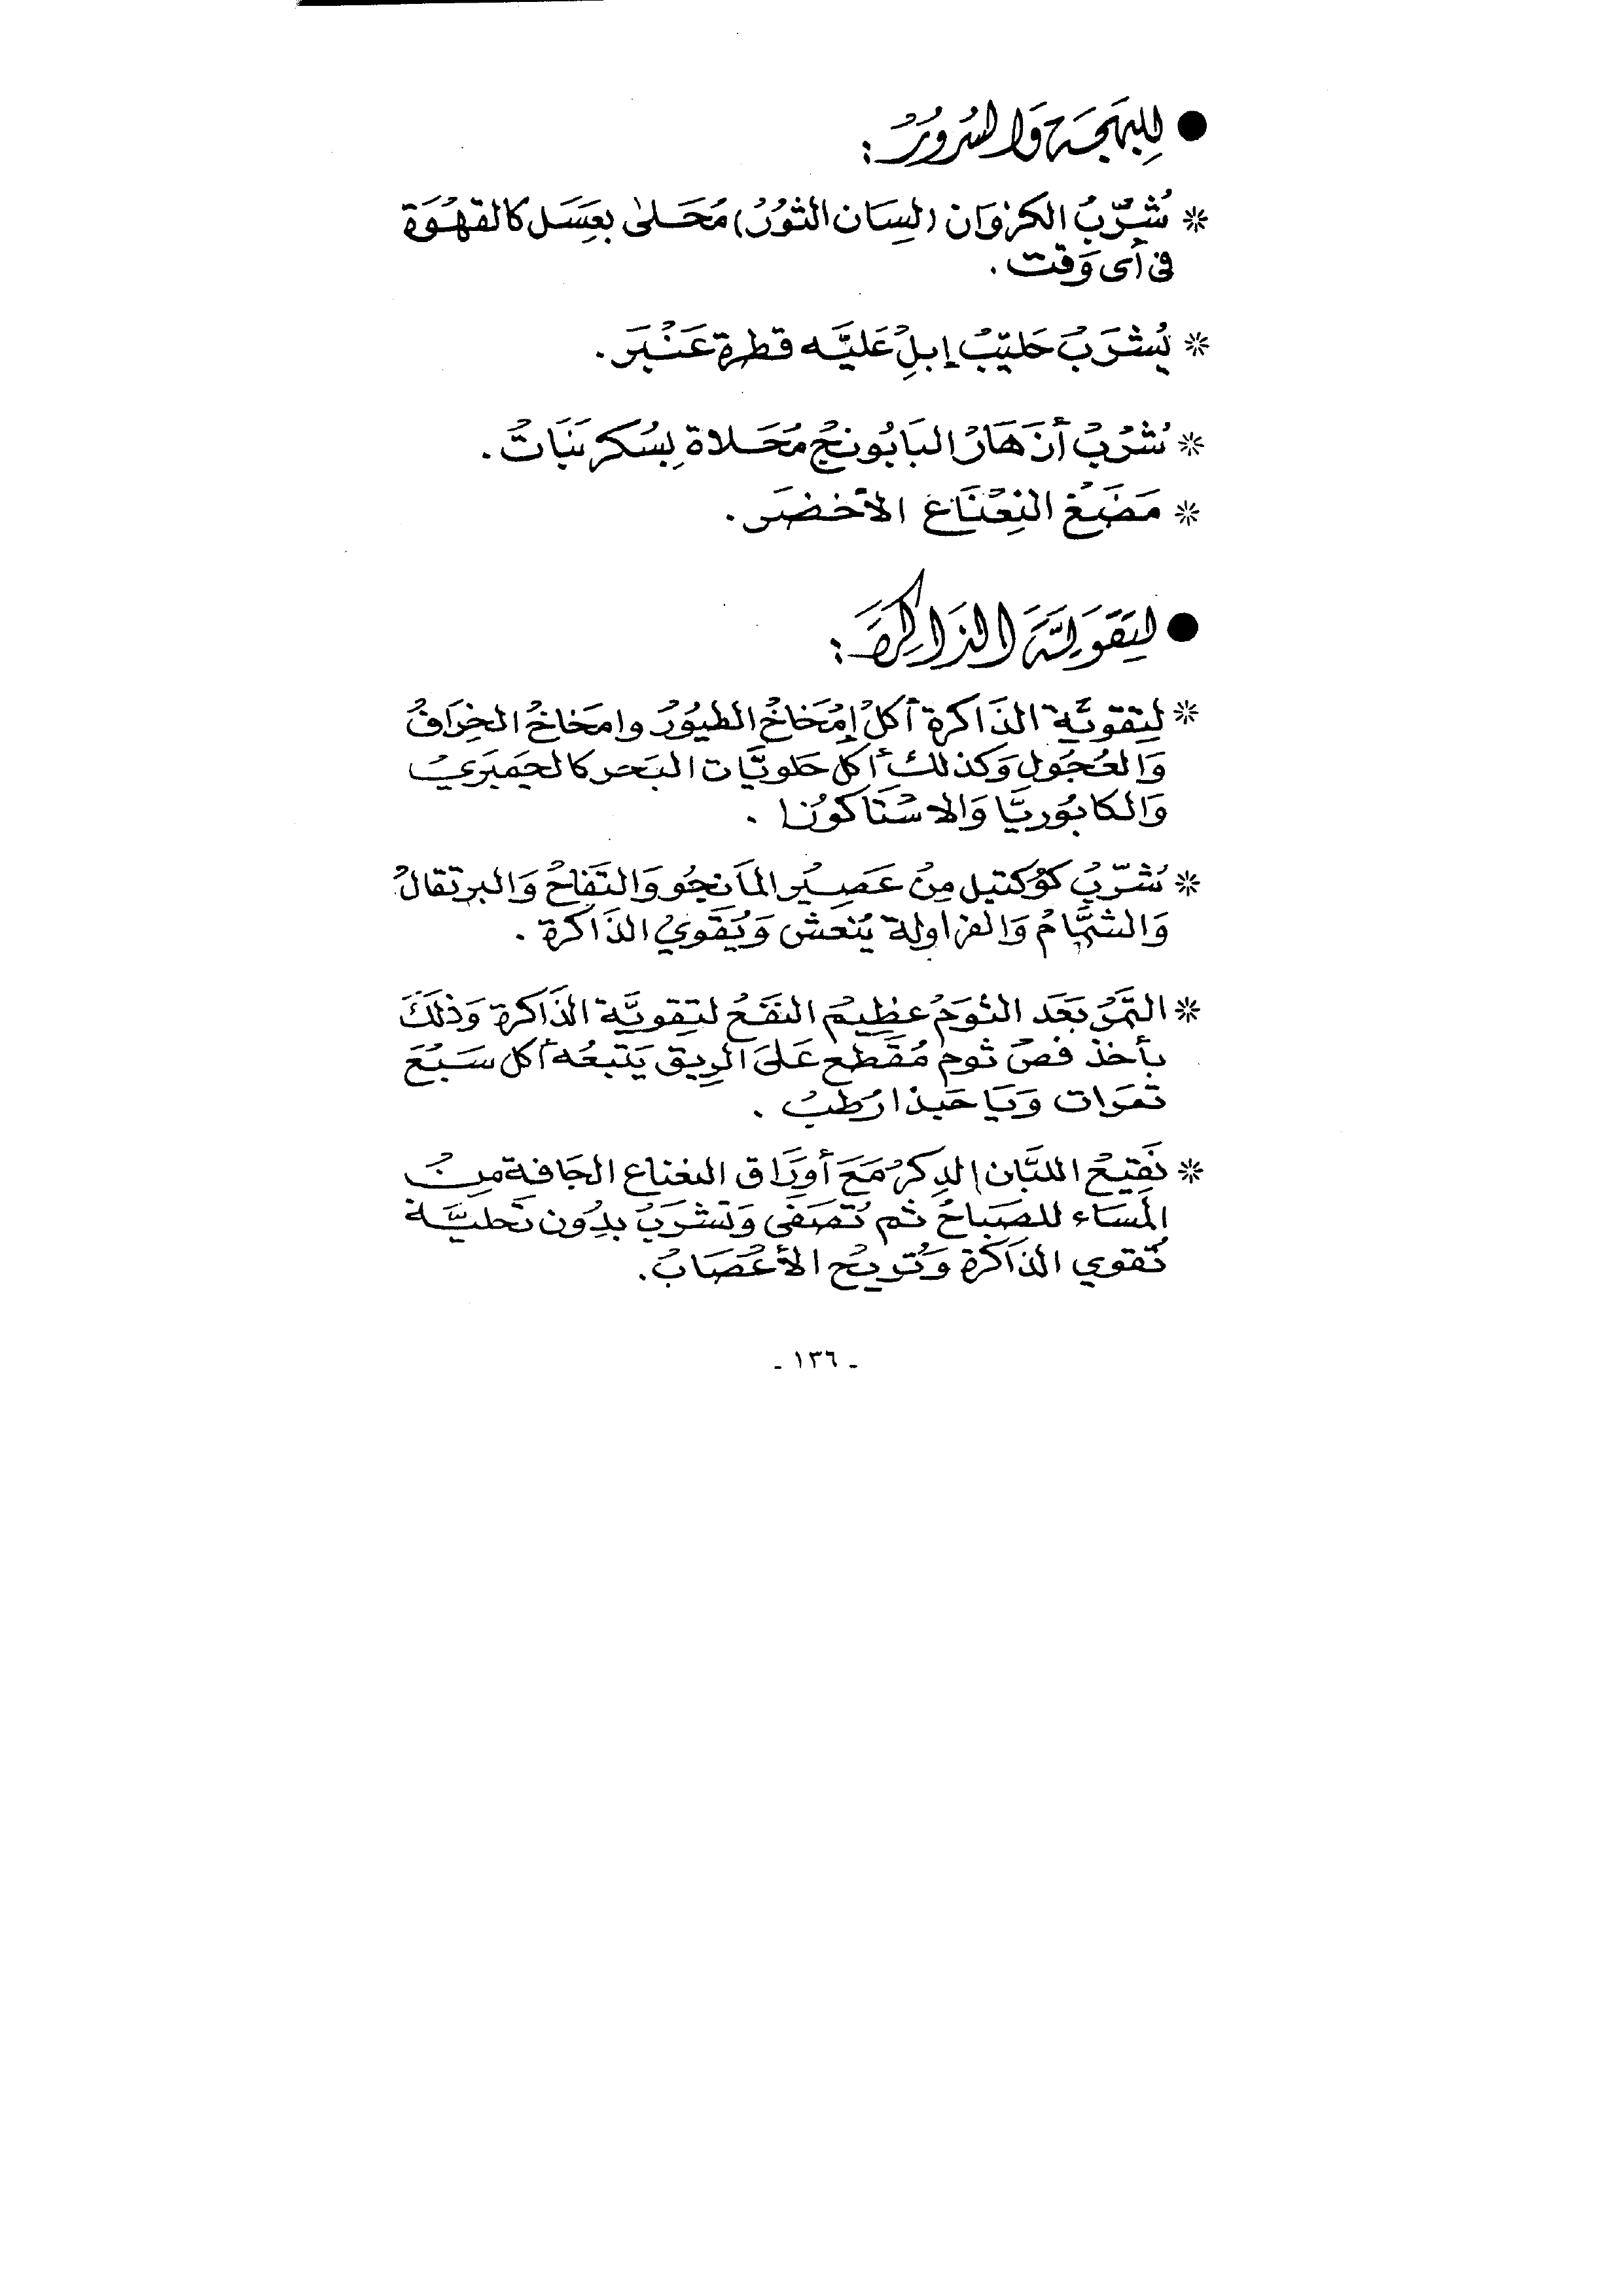 ● للبهجة والسرور :
* شرب الكزوان (لسان الثور) محلى بعسل كالقهوة
فى أى وقت .
* يشرب حليب إبل عليه قطرة عنبر .
* شرب أزهار البابونج محلاة بسكر نبات .
* مضغ النعناع الأخضر .
● لتقوية الذاكرة :
* لتقوية الذاكرة أكل إمخاخ الطيور وامخاخ الخراف
والعجول وكذلك أكل حلويات البحر كالجمبري
والكابوريا والاستاكوزا .
* شرب كوكتيل من عصير المانجو والتفاح والبرتقال
والشمام والفراولة ينعش ويقوي الذاكرة .
* التمر بعد الثوم عظيم النفع لتقوية الذاكرة وذلك
بأخذ فص ثوم مقطع على الريق يتبعه أكل سبع
تمرات ويا حبذا رطب .
* نقيع اللبان الدكر مع أوراق النعناع الجافة من
المساء للصباح ثم تصفى وتشرب بدون تحلية
تقوي الذاكرة وتريح الأعصاب .
- ١٣٦ -